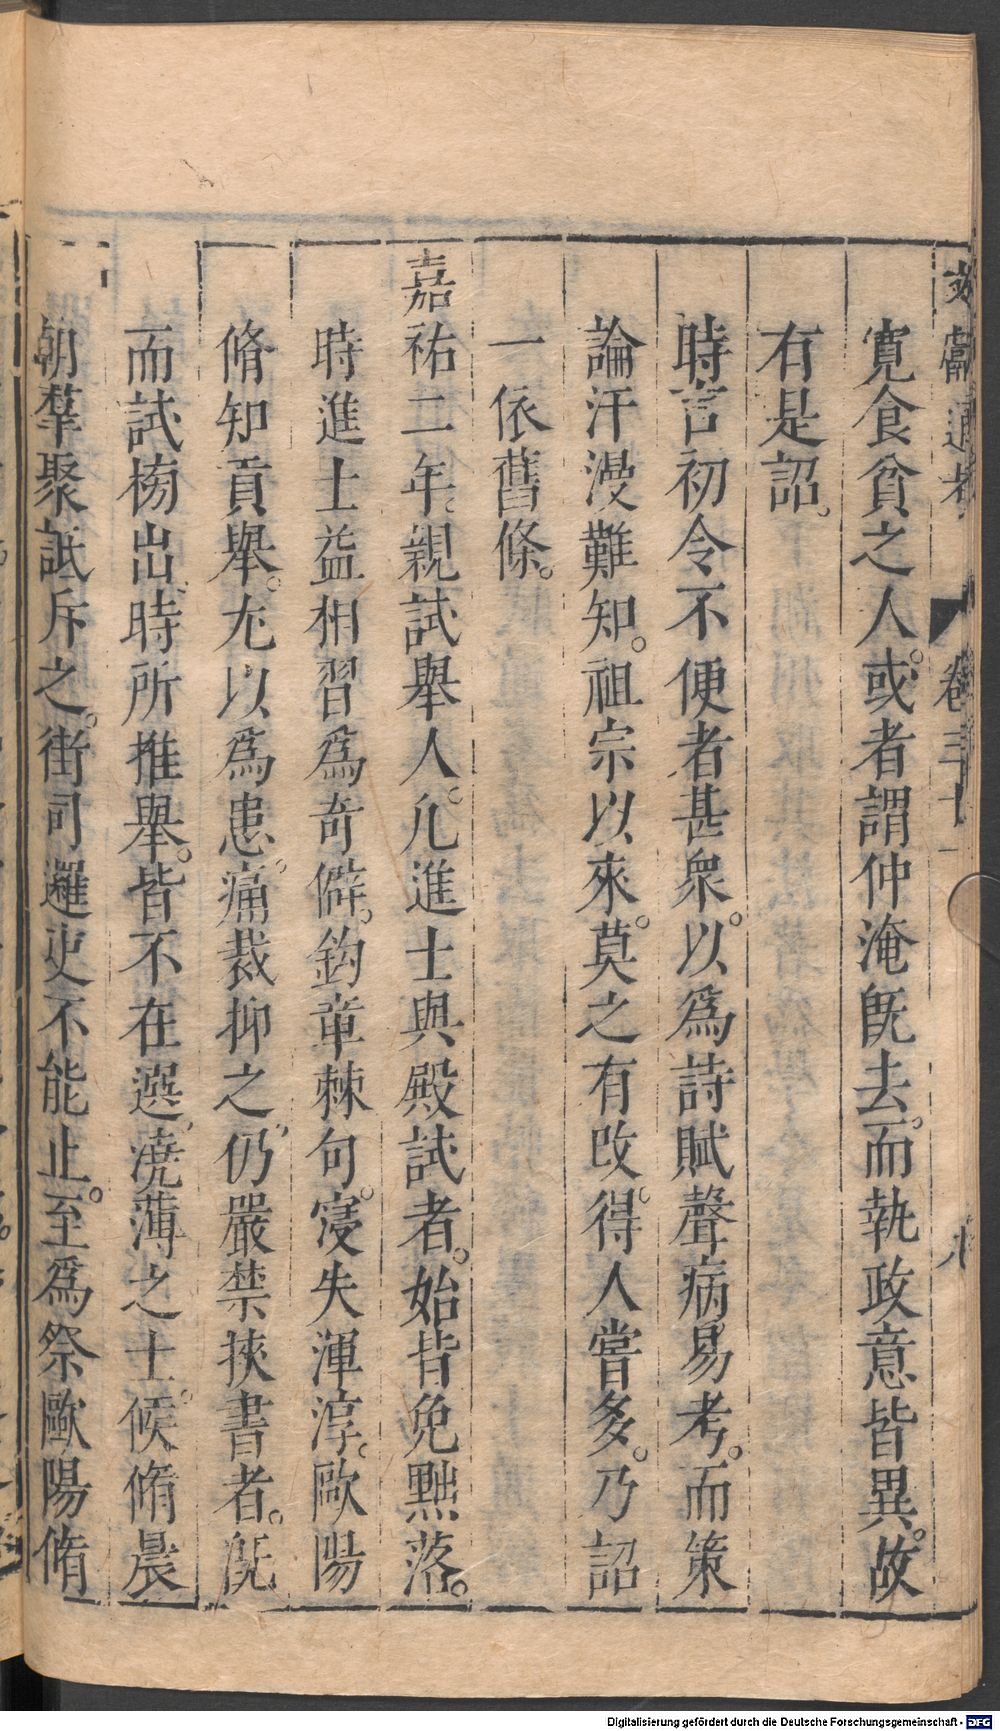 文獻通考 卷三十一 八
寛食貧之人。或者謂仲淹旣去。而執政意皆異。故
有是詔。
時言初令不便者甚衆。以爲詩賦聲病易考。而策
論汗漫難知。祖宗以來。莫之有改。得人嘗多。乃詔
一依舊條。
嘉祐二年。親試舉人。凡進士與殿試者。始皆免黜落。
時進士益相習爲奇僻。鈎章棘句。寖失渾淳。歐陽
脩知貢舉。尤以爲患。痛裁抑之。仍嚴禁挾書者。旣
而試榜出。時所推舉。皆不在選。澆薄之士。候脩晨
朝羣聚詆斥之。街司邏吏不能止。至爲祭歐陽脩
Digitalisierung gefördert durch die Deutsche Forschungsgemeinschaft - DFG